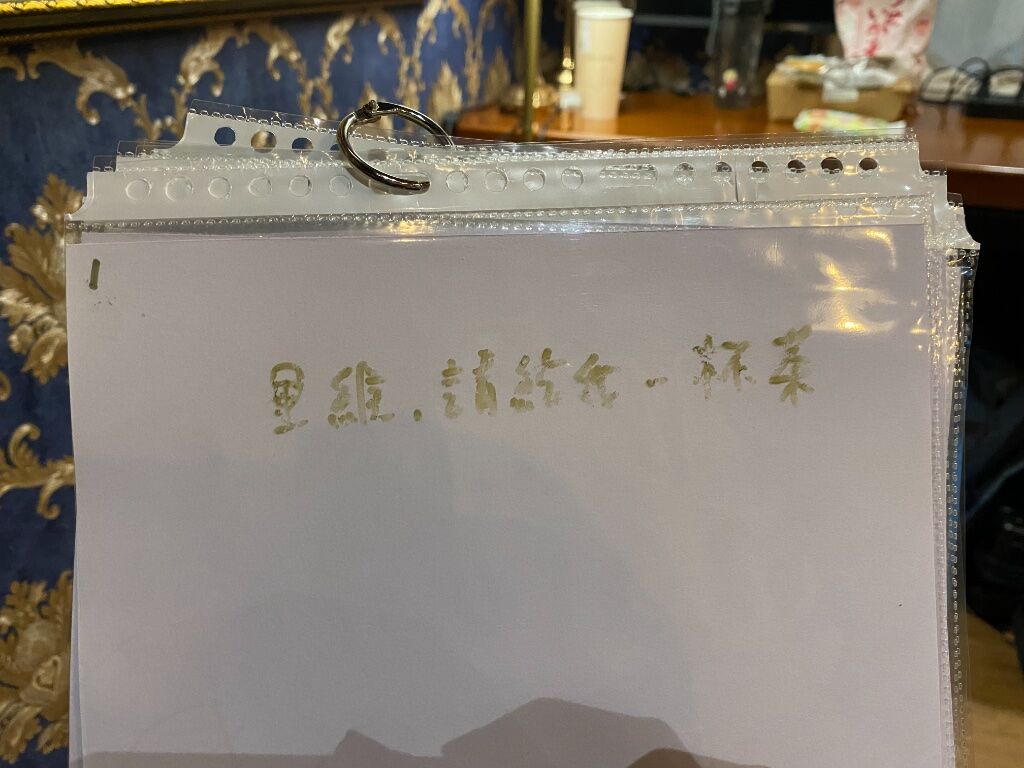 1
里維.請給一杯茶